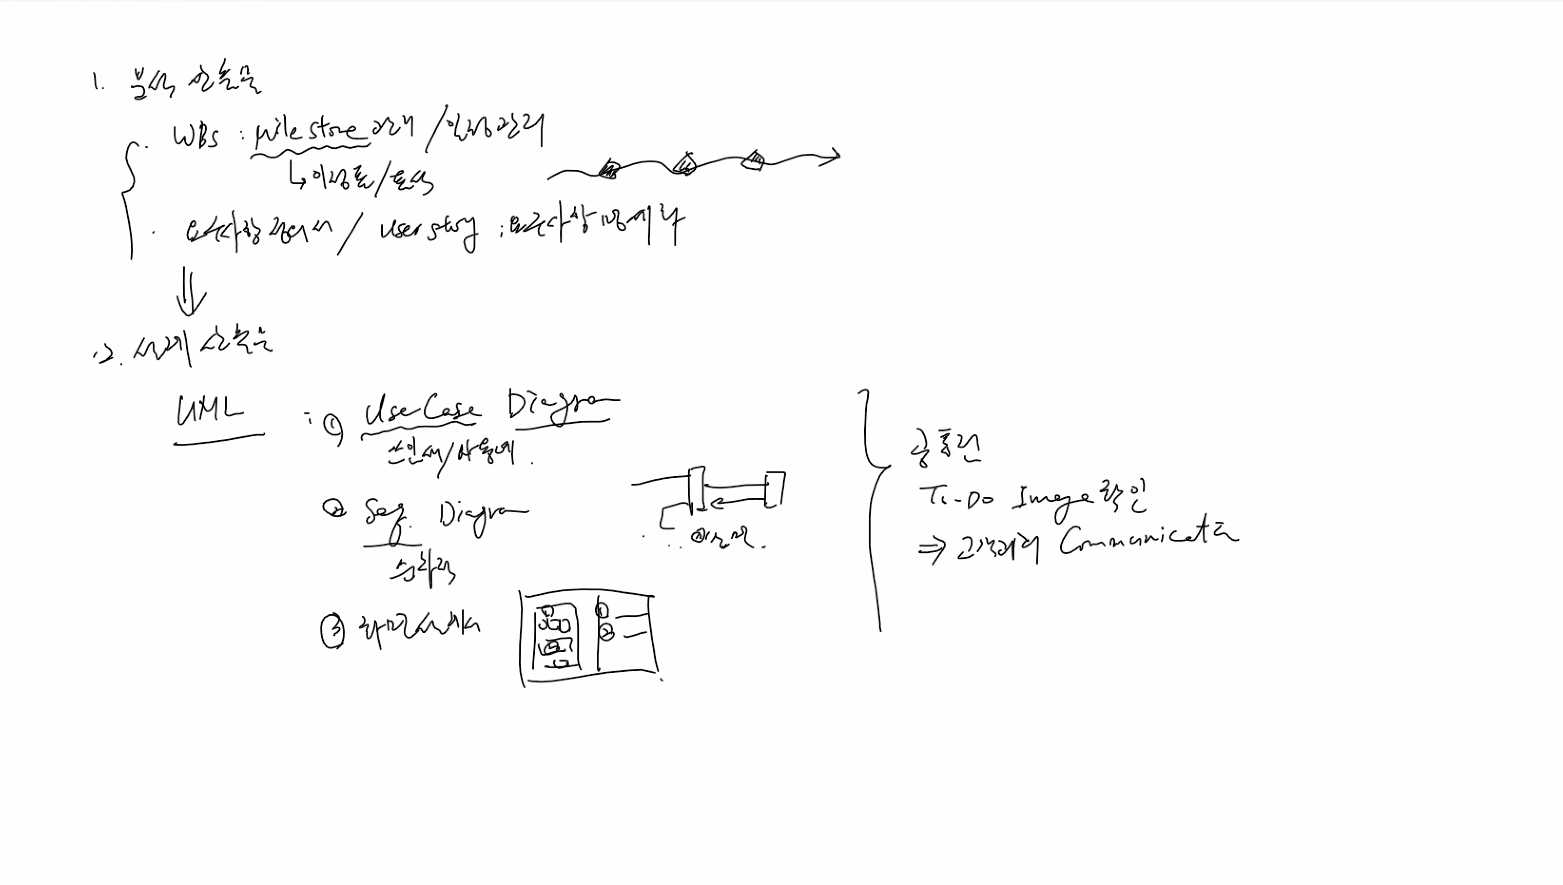 1. 분석 산출물
· WBS : Milestone 관리 / 일정관리
↳ 이정표/
· 요구사항 정의서 / User story : 요구사항 명세화
⇓
2. 설계 산출물
UML : ① UseCase Diagram
쓰임새/사용예.
② Seq. Diagram
③ 화면설계서
① ②
공통점
To-Do Image 확인
⇒ 고객과의 Communicat